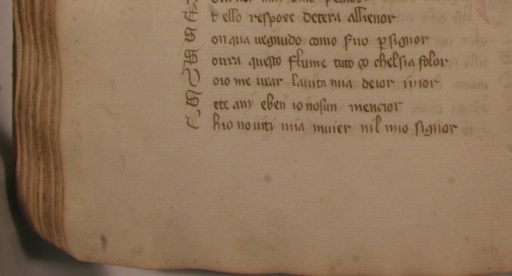 E t ello respoxe detera allienor
S on qua uegnudo como fuo p signor
S oura questo flume tuto ço chelsia folor
V oio me uear la uita mia
S ete any e ben io no sum mencior
C hio no viti mia muier nil mio signor